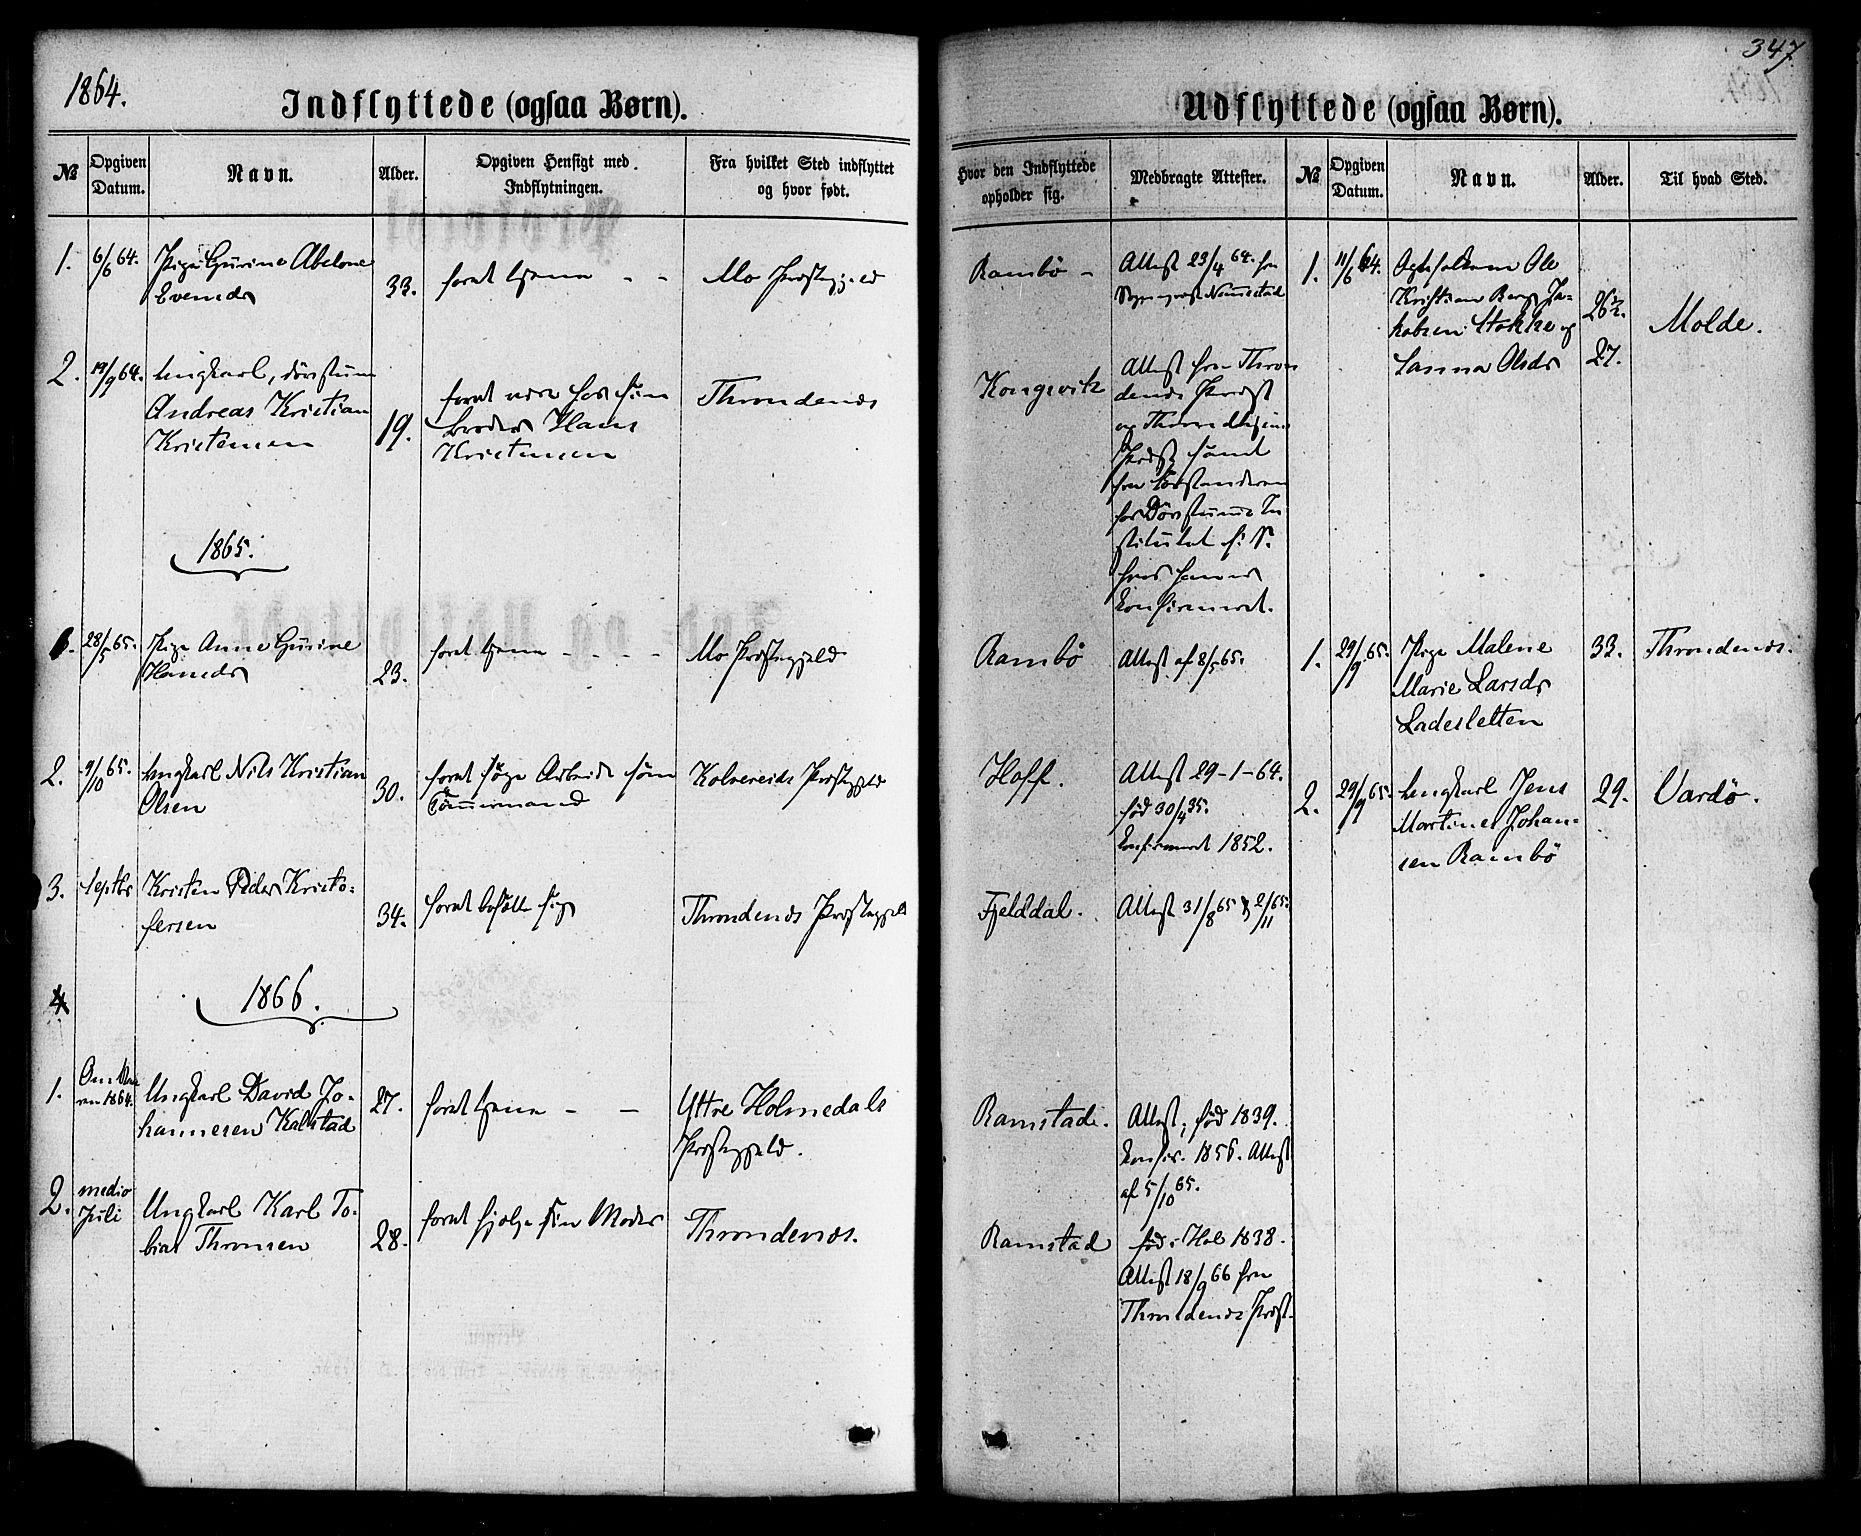 1864.
Indflyttede (ogsaa Børn).
№
Opgiven Datum.
Navn.
Alder.
Opgiven Hensigt med Indflytningen.
Fra hvilket Sted indflyttet og hvor født.
1.
6/6 64.
Pige Gurine Abelone
Evensdr
33.
for at tjene - -
Mo Præstegjeld
2.
19/9 64.
Ungkarl, døvstum
Andreas Kristian
Kristensen
19.
for at være hos sin
Broder Hans
Kristensen
Throndenæs
1865.
1.
28/5 65.
Pige Anne Gurine
Hansdr
23.
for at tjene - - - -
Mo Præstegjeld
2.
9/10 65.
Ungkarl Nils Kristian
Olsen
30.
for at søge Arbeide som
Tømmermand
Kolvereids Præstegjeld
3.
Septbr
Kristen Peder Kristo-
fersen
34.
for at bosætte sig
Throndenæs Præstegjeld
4
1866.
1.
1864.
Ungkarl David Jo-
hannesen Kalstad
27.
for at tjene - -
Yttre Holmedals
Præstegjeld.
2.
medio
Juli
Ungkarl Karl To-
bias Thomsen
28.
for at hjælpe sin Moder
Throndenæs.
347
Udflyttede (ogsaa Børn).
Hvor den Indflyttede opholder sig.
Medbragte Attester.
№
Opgiven Datum.
Navn.
Alder.
Til hvad Sted.
Rambö -
Attest 23/4 64. fra
Kongsvik
Attest fra Thron
denæs Præst
og Throndhjems
Præst samt
fra Forstanderen
for Døvstumme In
stitutet
konfirmeret.
1.
11/6 64.
Ægtefolkene Ole
Kristian Berg Ja-
kobsen Stokke og
Sanna Olsdr
26½.
27.
Molde.
Rambö
Attest af 8/5 65.
1.
29/9 65.
Pige Malene
Marie Larsdr
Ladesletten
33.
Throndenæs.
Hoff.
Attest 29-1-64.
fød 30/4 35.
konfirmeret 1852.
2.
29/9 65.
Ungkarl Jens
Martines Johan-
sen Rambö
29.
Vardö.
Fjelddal.
Attest 31/8 65 & 2/11 65.
Ramstad.
Attest, fød 1839.
konfir. 1856. Attest
af 5/10 65.
Ramstad
fød i Hol 1838.
Attest 18/9 66 fra
Throndenæs Præst.